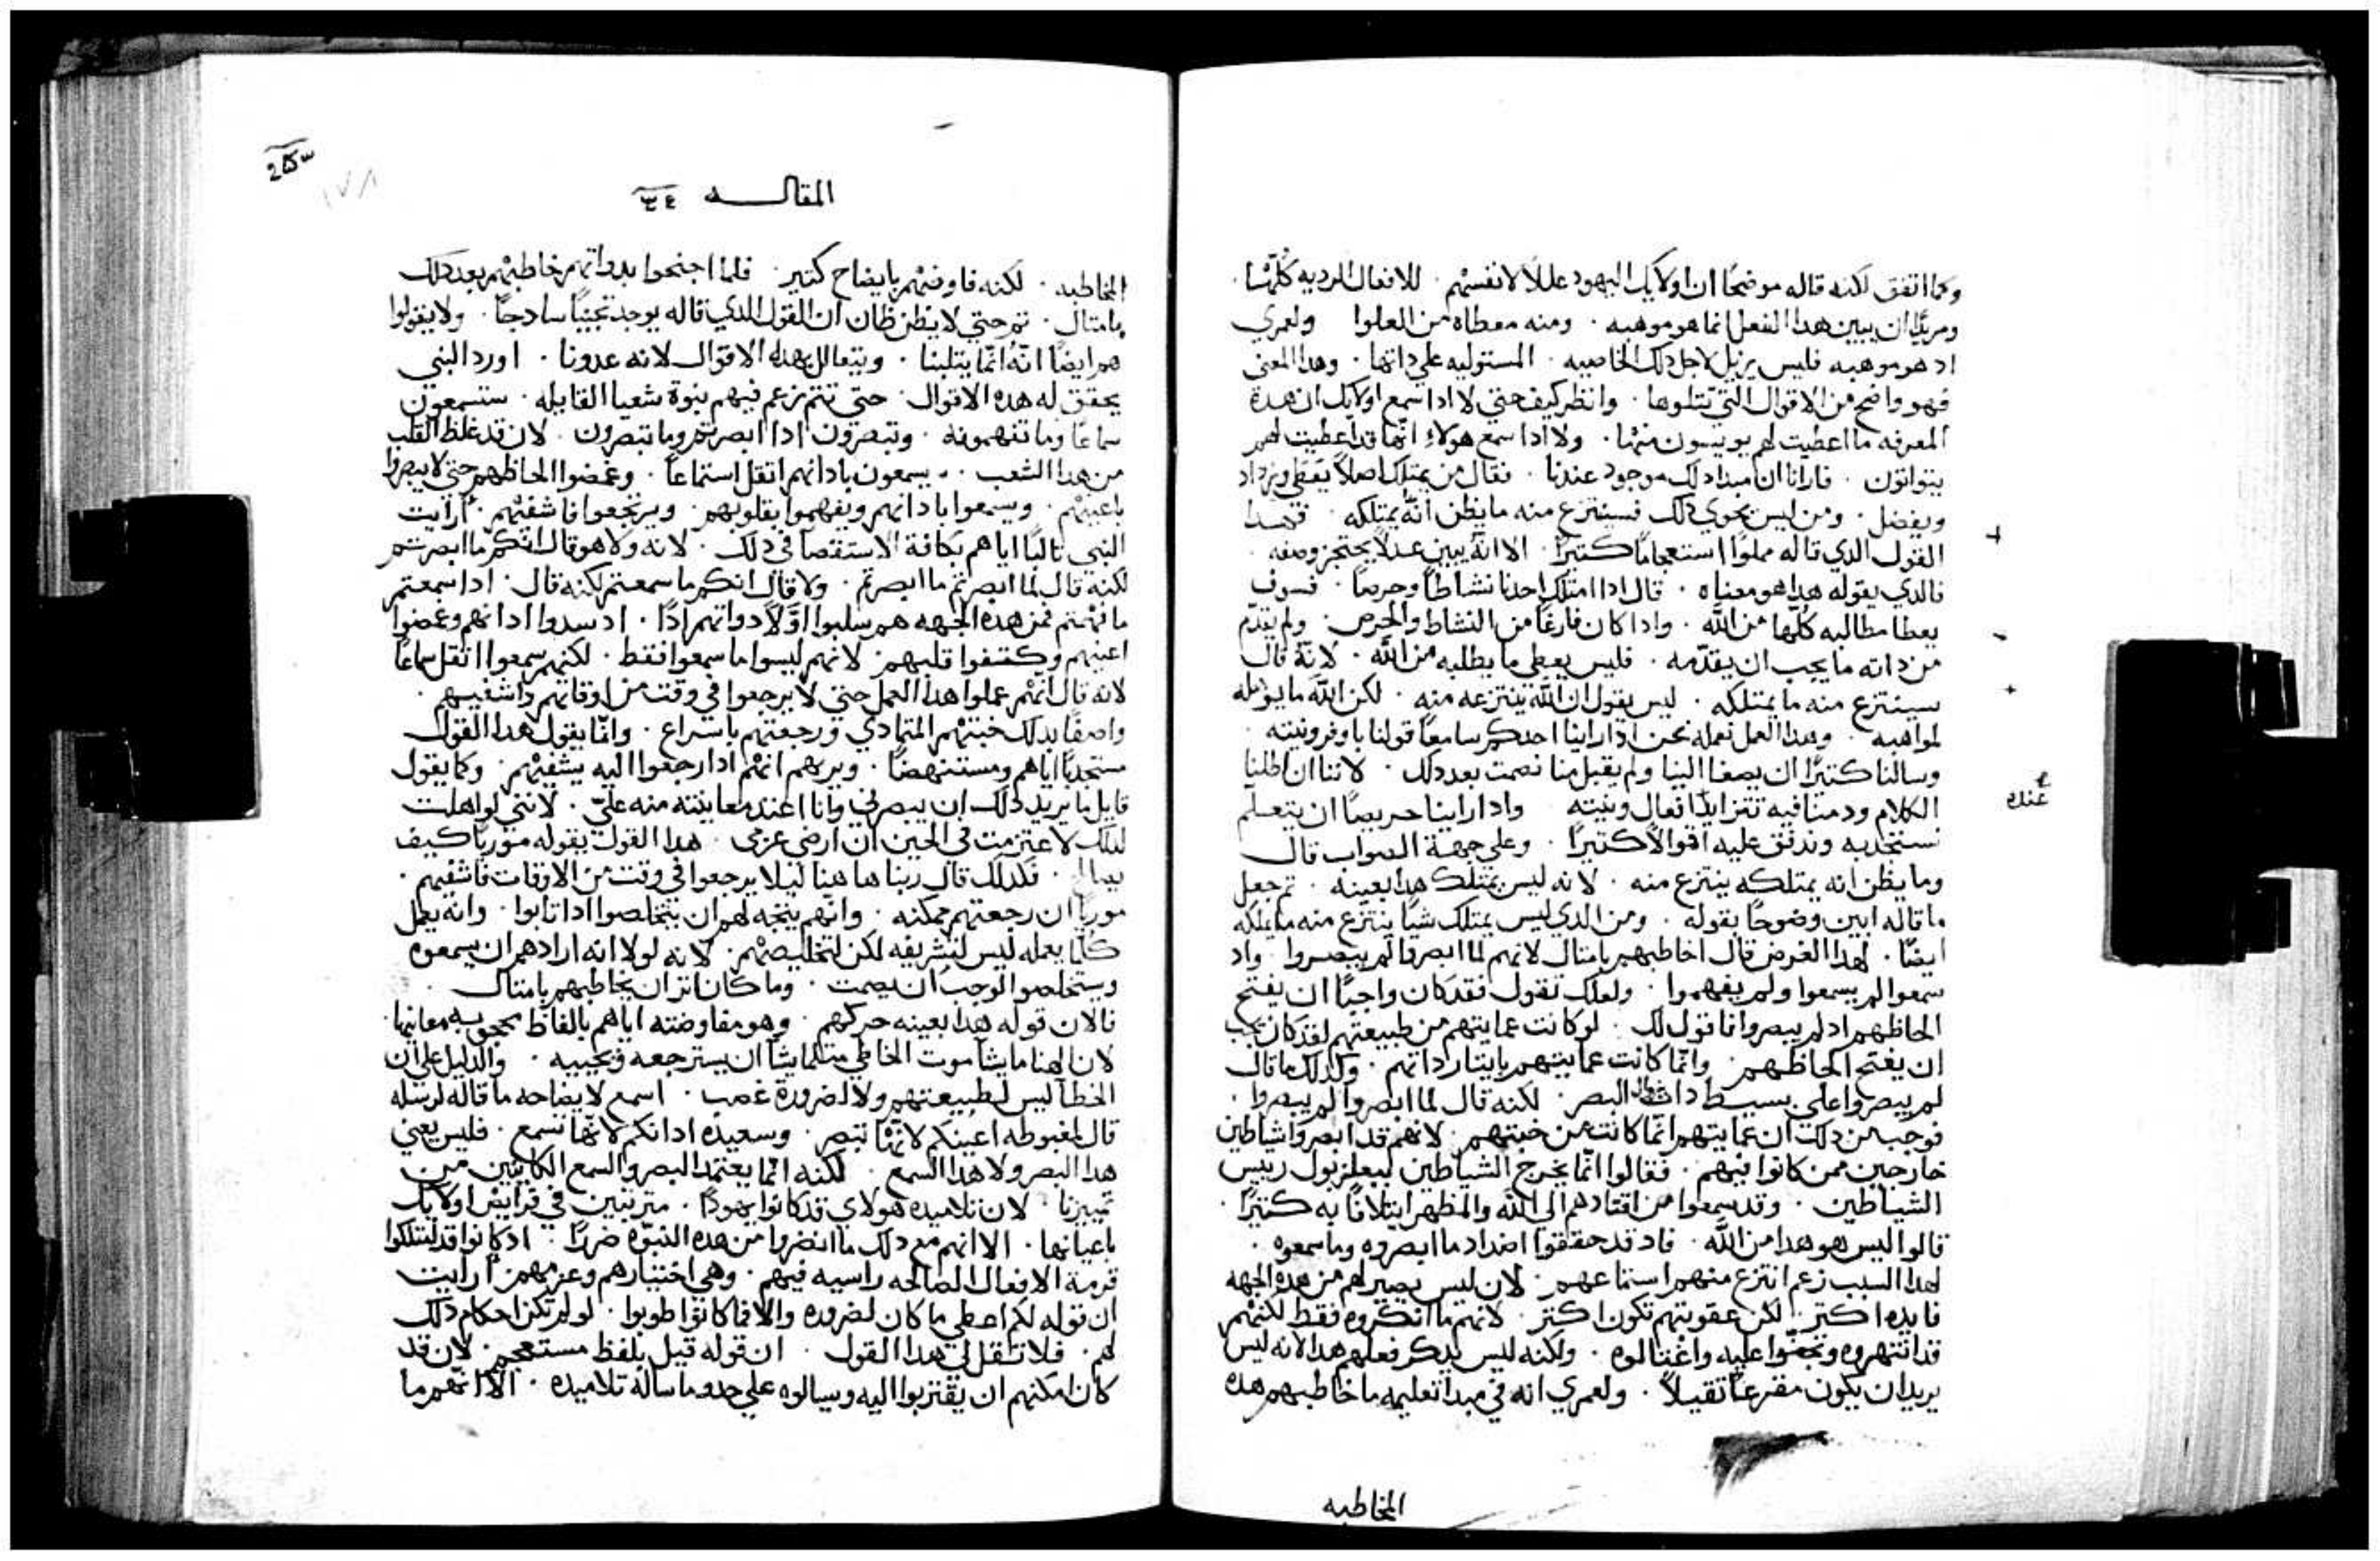 وكما اتفق لكنه قاله موضحًا ان اولايك اليهود عللًا لانفسهم . للافعال الرديه كلّها .
ومريدًا ان يبين هدا الفعل انما هو موهبه . ومنه معطاه من العلوا ولعمري
اد هو موهبه فليس يزيل لاجل دلك الخاصيه . المستوليه علي داتها . وهدا المعني
فهو واضح من الاقوال التي تتلوها . وانظر كيف حتي لا ادا سمع اولايك ان هده
المعرفه ما اعطيت لهم يوييسون منها . ولا ادا سمع هولاءِ انها قد اعطيت لهم
يتوانون . فارانا ان مبدا دلك موجود عندنا . فقال من يمتلك اصلًا يعطي ويزداد
ويفضل . ومن ليس يحوي دلك فسينتزع منه ما يظن انّه يمتلكه . فهدا
القول الدي قاله مملوًا استعجامًا كثيرًا . الا انّه يبين عدلًا يحتجز وصفه .
فالدي يقوله هدا هو معناه . قال ادا امتلك احدنا نشاطًا وحرصًا . فسوف
يعطا مطالبه كلّها من اللّه . وادا كان فارغًا من النشاط والحرص . ولم يقدّم
من داته ما يجب ان يقدّمه . فليس يعطي ما يطلبه من اللّه . لانّه قال
سينتزع منه ما يمتلكه . ليس يقول ان اللّه ينتزعه منه . لكن اللّه ما يوهله
لمواهبه . وهدا العمل نعمله نحن ادا راينا احدكم سامعًا قولنا باوفر ونيته .
وسالنا كثيرًا ان يصغا الينا ولم يقبل منا نصمت بعد دلك . لاننا ان اطلنا
الكلام ودمنا فيه تتزايد افعال ونيته وادا راينا حريصًا ان يتعلّم
عنده
نستجدبه وندفق عليه اقوالًا كثيرًا . وعلي جهة الصواب قال
وما يظن انه يمتلكه ينتزع منه . لانه ليس يمتلك هدا بعينه . ثم جعل
ما قاله ابين وضوحًا بقوله . ومن الدي ليس يمتلك شيًا ينتزع منه ما يملكه
ايضًا . لهدا الغرض قال اخاطبهم بامثال لانهم لما ابصروا لم يبصروا . واد
سمعوا لم يسمعوا ولم يفهموا . ولعلك تقول فقد كان واجبًا ان يفتح
الحاظهم اد لم يبصروا فاقول لك . لو كانت عمايتهم من طبيعتهم لقد كان يجب
ان يفتح الحاظهم . وانّما كانت عمايتهم بايتار داتهم . وكدلك ما قال
لم يبصروا علي بسيط دات البصر . لكنه قال لما ابصروا لم يبصروا .
فوجب من دلك ان عمايتهم انّما كانت من خبثهم . لانهم قد ابصروا شياطين
خارجين ممن كانوا فيهم . فقالوا انّما يخرج الشياطين ببعلزبول رييس
الشياطين . وقد سمعوا من اقتادهم الي اللّه والمظهر ايتلافًا به كثيرًا .
قالوا ليس هو هدا من اللّه . فاد قد حققوا اضداد ما ابصروه وما سمعوه .
لهدا السبب زعم انتزع منهم استماعهم . لان ليس يصير لهم من هده الجهه
فايده اكثر . لكن عقوبتهم تكون اكثر . لانهم ما انكروه فقط لكنهم
قد انتهروه وتجنّوا عليه واغتالوه . ولكنه ليس يدكر فعلهم هدا لانه ليس
يريد ان يكون مقرعًا ثقيلًا . ولعمري انه في مبدا تعليمه ما خاطبهم هده
المخاطبه
المقاله ٣٤
المخاطبه . لكنه فاوضهم بايضاح كثير . فلما اجنحوا بدواتهم خاطبهم بعد دلك
بامثال . ثم حتي لا يظن ظان ان القول الدي قاله يوجد تجنيًا سادجًا . ولا يقولوا
هم ايضًا انّه انّما يثلبنا . ويتعالل بهده الاقوال لانه عدونا . اورد النبي
يحقق له هده الاقوال . حتي تتم زعم فيهم نبوة شعيا القايله . ستسمعون
سماعًا وما تفهمونه . وتبصرون ادا ابصرتم وما تبصرون . لان قد غلظ القلب
من هدا الشعب . ويسمعون بادانهم اثقل استماعًا . وغمضوا الحاظهم حتي لا يبصروا
باعينهم . ويسمعوا بادانهم ويفهموا بقلوبهم . ويرجعوا فاشفيهم . ارايت
النبي ثالبًا اياهم بكافة الاستقصا في دلك . لانه ولا هو قال انكم ما ابصرتم
لكنه قال لما ابصرتم ما ابصرتم . ولا قال انكم ما سمعتم لكنه قال . ادا سمعتم
ما فهمتم فمن هده الجهه هم سلبوا اوّلًا دواتهم . اد سدوا ادانهم وغمضوا
اعينهم وكثفوا قلبهم . لانهم ليسوا ما سمعوا فقط . لكنهم سمعوا اثقل سماعًا
لانه قال انّهم عملوا هدا العمل حتي لا يرجعوا في وقت من اوقاتهم واشفيهم .
واصفًا بدلك خبثهم المتمادي ورجعتهم باسراع . وانّما يقول هدا القول
مستجدبًا اياهم ومستنهضًا . ويريهم انهم ادا رجعوا اليه يشفيهم . وكما يقول
قايل ما يريد دلك ان يبصرني وانا اعتد معاينته منه عليّ . لانني لو اهلت
لدلك لاعتزمت في الحين ان ارضي عزمي . هدا القول يقوله موريًا كيف
. فكدلك قال ربنا هاهنا ليلا يرجعوا في وقت من الاوقات فاشفيهم .
موريًا ان رجعتهم ممكنه . وانهم يتجه لهم ان يتخلصوا ادا تابوا . وانه يعمل
كلما يعمله ليس لتشريفه لكن لتخليصهم . لانه لولا انه ارادهم ان يسمعوه
ويتخلصوا لوجب ان يصمت . وما كان اثر ان يخاطبهم بامثال .
فالان قوله هدا بعينه حركهم . وهو مفاوضته اياهم بالفاظ معانيها .
لان الهنا ما يشا موت الخاطي مثلما يشا ان يسترجعه ويحييه . والدليل علي ان
الخطا ليس لطبيعتهم ولا لضرورة غصب . اسمع لايضاحه ما قاله لرسله
قال لمغبوطه اعينكم لانّها تبصر . وسعيده ادانكم لانّها تسمع . فليس يعني
هدا البصر ولا هدا السمع . لكنه انّما يعتمد البصر والسمع الكاينين من
تمييزنا . لان تلاميده هولاي قد كانوا يهودًا . متربتين في فرايض اولايك
باعيانها . الا انهم مع دلك ما انضروا من هده النبوّه ضررًا . اد كانوا قد امتلكوا
قرمة الافعال الصالحه راسيه فيهم . وهي اختيارهم وعزمهم . ارايت
ان قوله لكم اعطي ما كان لضروره والا فما كانوا طوبوا . لو لم تكن احكام دلك
لهم . فلا تقل لي هدا القول . ان قوله قيل بلفظ مستعجم . لان قد
كان امكنهم ان يقتربوا اليه ويسالوه علي حدو ما ساله تلاميده . الا انّهم ما